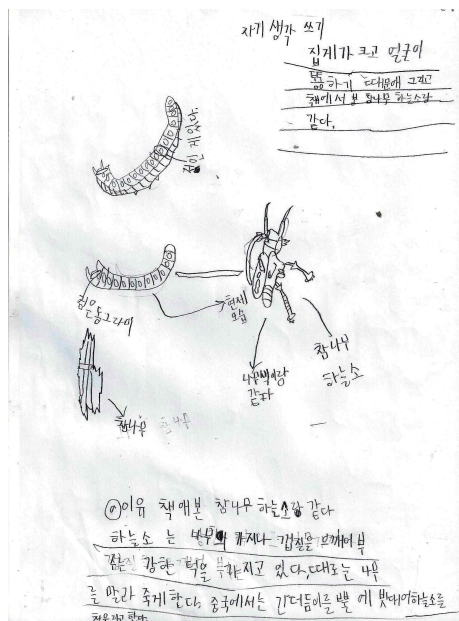 자기 생각 쓰기
집게가 크고 얼굴이
똥하기 때문에 그리고
책에서 본 참나무 하늘소랑
같다.
점인 게 있다.
검은 동그라미
현재
모습
참나무
하늘소
나무색이랑
같다
참나무
이유 책애본 참나무 하늘소랑 같다
하늘소 는 가지나 껍질을 부
강한 턱을 가지고 있다, 때로는 나무
를 말라 죽게 한다. 중국에서는 에 하늘소를